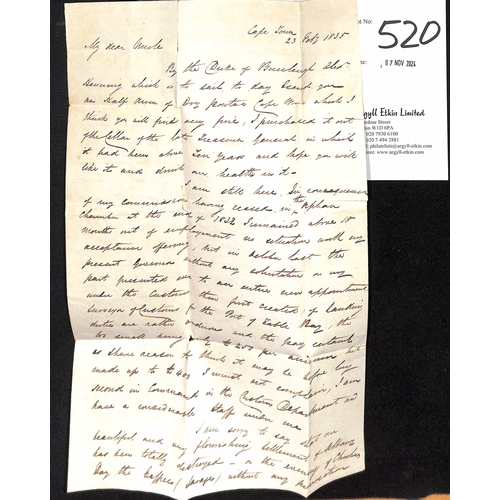 Cape Town
23 Feby 1835
My dear Uncle
By the Duke of Buccleugh Alexr
Henning which is to sail to day I send you
an Half Aum of Dry Pontac Cape Wine which I
think you will find very fine, I purchased it out
of the Cellar of the late Treasurer General in which
it had been above Ten Years and hope you will
like it and drink our healths in it.
I am still here, In consequence
of my commission having ceased in the Orphan
Chamber at the end of 1833 I remained about 18
months out of employment no situation worth my
acceptance offering, but in October last the
present Governor without any solicitation on my
part presented me to an entire new appointment
under the Customs then first created, of Landing
Surveyor of Customs for the Port of Table Bay, the
duties are rather arduous and the Salary certainly
too small being £250 per annum but
as I have reason to think it may be before long
made up to £400 I must not complain, I am
second in Command in the Customs Department and
have a considerable Staff under me
I am sorry to say that our
beautiful and very flourishing Settlement of Albany
has been totally destroyed - on the evening of Christmas
Day the Kaffers (Savages) without any provocation
Lot No:
520
07 NOV 2024
Argyll Etkin Limited
Street
London W1D 6PA
020 7930 6100
020 7494 2881
philatelists@argyll-etkin.com
www.argyll-etkin.com